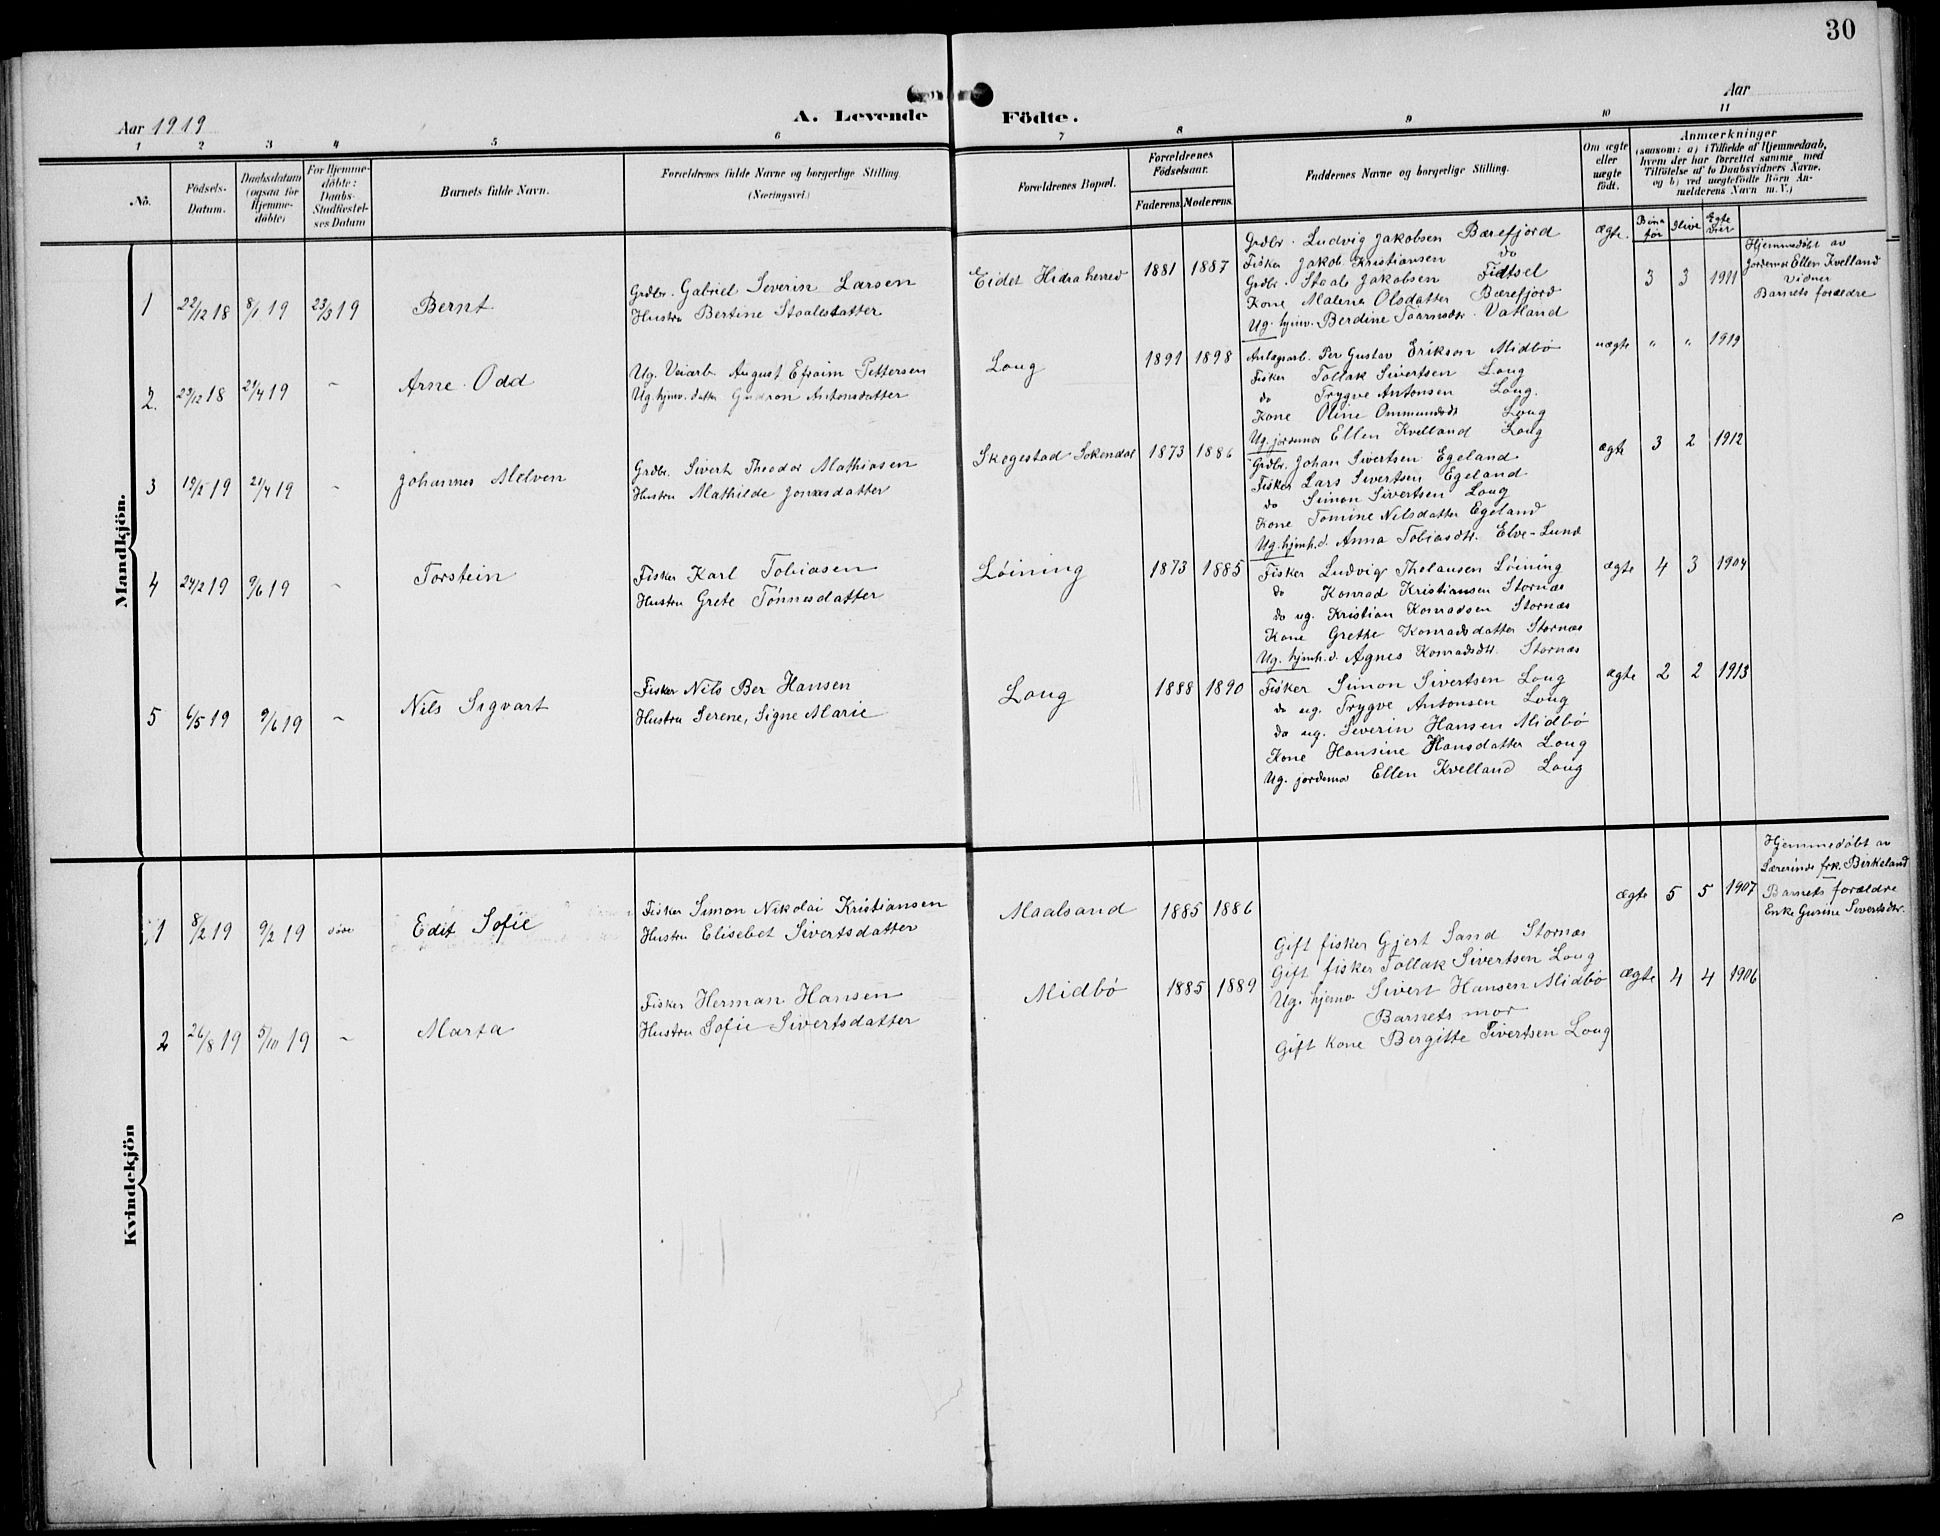 30
Aar 1919
A. Levende Födte.
Aar
1 2 3 4 5 6 7 8 9 10 11
No.
Födsels-Datum.
Daabsdatum (ogsaa for Hjemme-döbte)
For Hjemme-döbte: Daabs-Stadfæstel-ses Datum
Barnets fulde Navn.
Forældrenes fulde Navne og borgerlige Stilling (Næringsvei.)
Forældrenes Bopæl.
Forældrenes Födselsaar.
Faderens. Moderens.
Faddernes Navne og borgerlige Stilling.
Om ægte eller uægte födt.
Anmærkninger
(saasom: a) i Tilfælde af Hjemmedaab, hvem der har forrettet samme med Tilföielse af to Daabsvidners Navne, og b) ved uægtefödte Börn An-melderens Navn m. V.)
Börn før Ilive Egte viet
Mandkjön.
1 22/12 18 8/1 19 23/3 19 Bernt
Grdbr. Gabriel Severin Larsen
Hustru Bertine Staalesdatter
Eidet Hidra herred 1881 1887
Grdbr. Ludvig Jakobsen Bærefjord
Fisker Jakob Kristiansen do
Grdbr. Staale Jakobsen Fidtsel
Kone Malene Olsdatter Bærefjord
Ug. hjmv. Berdine Vatland
ægte. 3 3 1911
Hjemmedöbt av
Jordemor Ellen Kvelland
Vidner
Barnets forældre
2. 23/12 18 21/4 19 - Arne Odd
Ug. Veiarb. August Efraim Pettersen
Ug. hjmv. datter Gudron Antonsdatter
Loug 1891 1898
Anlægsarb. Per Gustav Erikson Midbö
Fisker Tollak Sivertsen Loug
do Trygve Antonsen Loug.
Kone Oline Ommundsdt Loug
Ug. jordemor Ellen Kvelland Loug
uægte " " 1919
3 19/2 19 21/4 19 - Johannes Melven
Grdbr. Sivert Theodor Mathiasen
Hustru Mathilde Jonasdatter
Skogestad Sokendal 1873 1886
Grdbr. Johan Sivertsen Egeland
Fisker Lars Sivertsen Egeland
do Simon Sivertsen Loug
Kone Tomine Nilsdatter Egeland
Ug. hjmh. d. Anna Tobiasdtr. Elve-Lund
ægte 3 2 1912
4 24/2 19 9/6 19 - Torstein
Fisker Karl Tobiasen
Hustru Grete Tönnesdatter
Löining 1873 1885
Fisker Ludvig Tholausen Löining
do Konrad Kristiansen Stornæs
do ug. Kristian Konradsen Stornæs
Kone Grethe Konradsdatter Stornæs
Ug. hjmh. d. Agnes Konradsdtr. Stornæs
ægte 4 3 1904
5 6/5 19 9/6 19 - Nils Sigvart
Fisker Nils Ber Hansen
Hustru Serene, Signe Marie
Loug 1888 1890
Fisker Simon Sivertsen Loug
do ug. Trygve Antonsen Loug
do ug. Severin Hansen Midbö
Kone Hansine Hansdatter Loug
Ug. jordemor Ellen Kvelland Loug
ægte 2 2 1913
Kvindekjön
1 8/2 19 9/2 19 döde Edit Sofie
Fisker Simon Nikolai Kristiansen
Hustru Elisebet Sivertsdatter
Maalsand 1885 1886
ægte 5 5 1907
Hjemmedöbt av
Lærerinde frk. Birkeland
Barnets forældre
Enke Gurine Sivertsdtr.
2 26/8 19 5/10 19 - Marta
Fisker Herman Hansen
Hustru Sofie Sivertsdatter
Midbö 1885 1889
Gift fisker Gjert Sand Stornæs
Gift fisker Tollak Sivertsen Loug
Ug. hjemv Sivert Hansen Midbö
Barnets mor
Gift Kone Bergitte Sivertsen Loug
ægte 4 4 1906